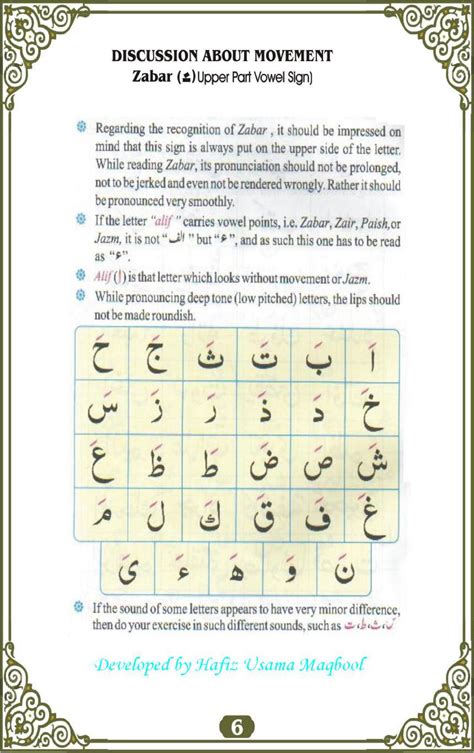 DISCUSSION ABOUT MOVEMENT
Zabar (َ) Upper Part Vowel Sign)
Regarding the recognition of Zabar , it should be impressed on
mind that this sign is always put on the upper side of the letter.
While reading Zabar, its pronunciation should not be prolonged,
not to be jerked and even not be rendered wrongly. Rather it should
be pronounced very smoothly.
If the letter "alif " carries vowel points, i.e. Zabar, Zair, Paish, or
Jazm, it is not "الف" but "ء", and as such this one has to be read
as "ء".
Alif (ا) is that letter which looks without movement or Jazm.
While pronouncing deep tone (low pitched) letters, the lips should
not be made roundish.
اَ بَ تَ ثَ جَ حَ
خَ دَ ذَ رَ زَ سَ
شَ صَ ضَ طَ ظَ عَ
غَ فَ قَ كَ لَ مَ
نَ وَ هَ ءَ یَ
If the sound of some letters appears to have very minor difference,
then do your exercise in such different sounds, such as
Developed by Hafiz Usama Maqbool
6